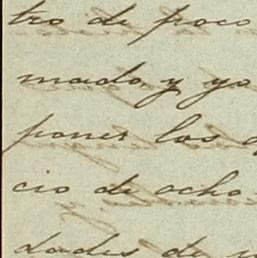 tro de poco
mado, y yo
poner los
cio de ocho
dades de